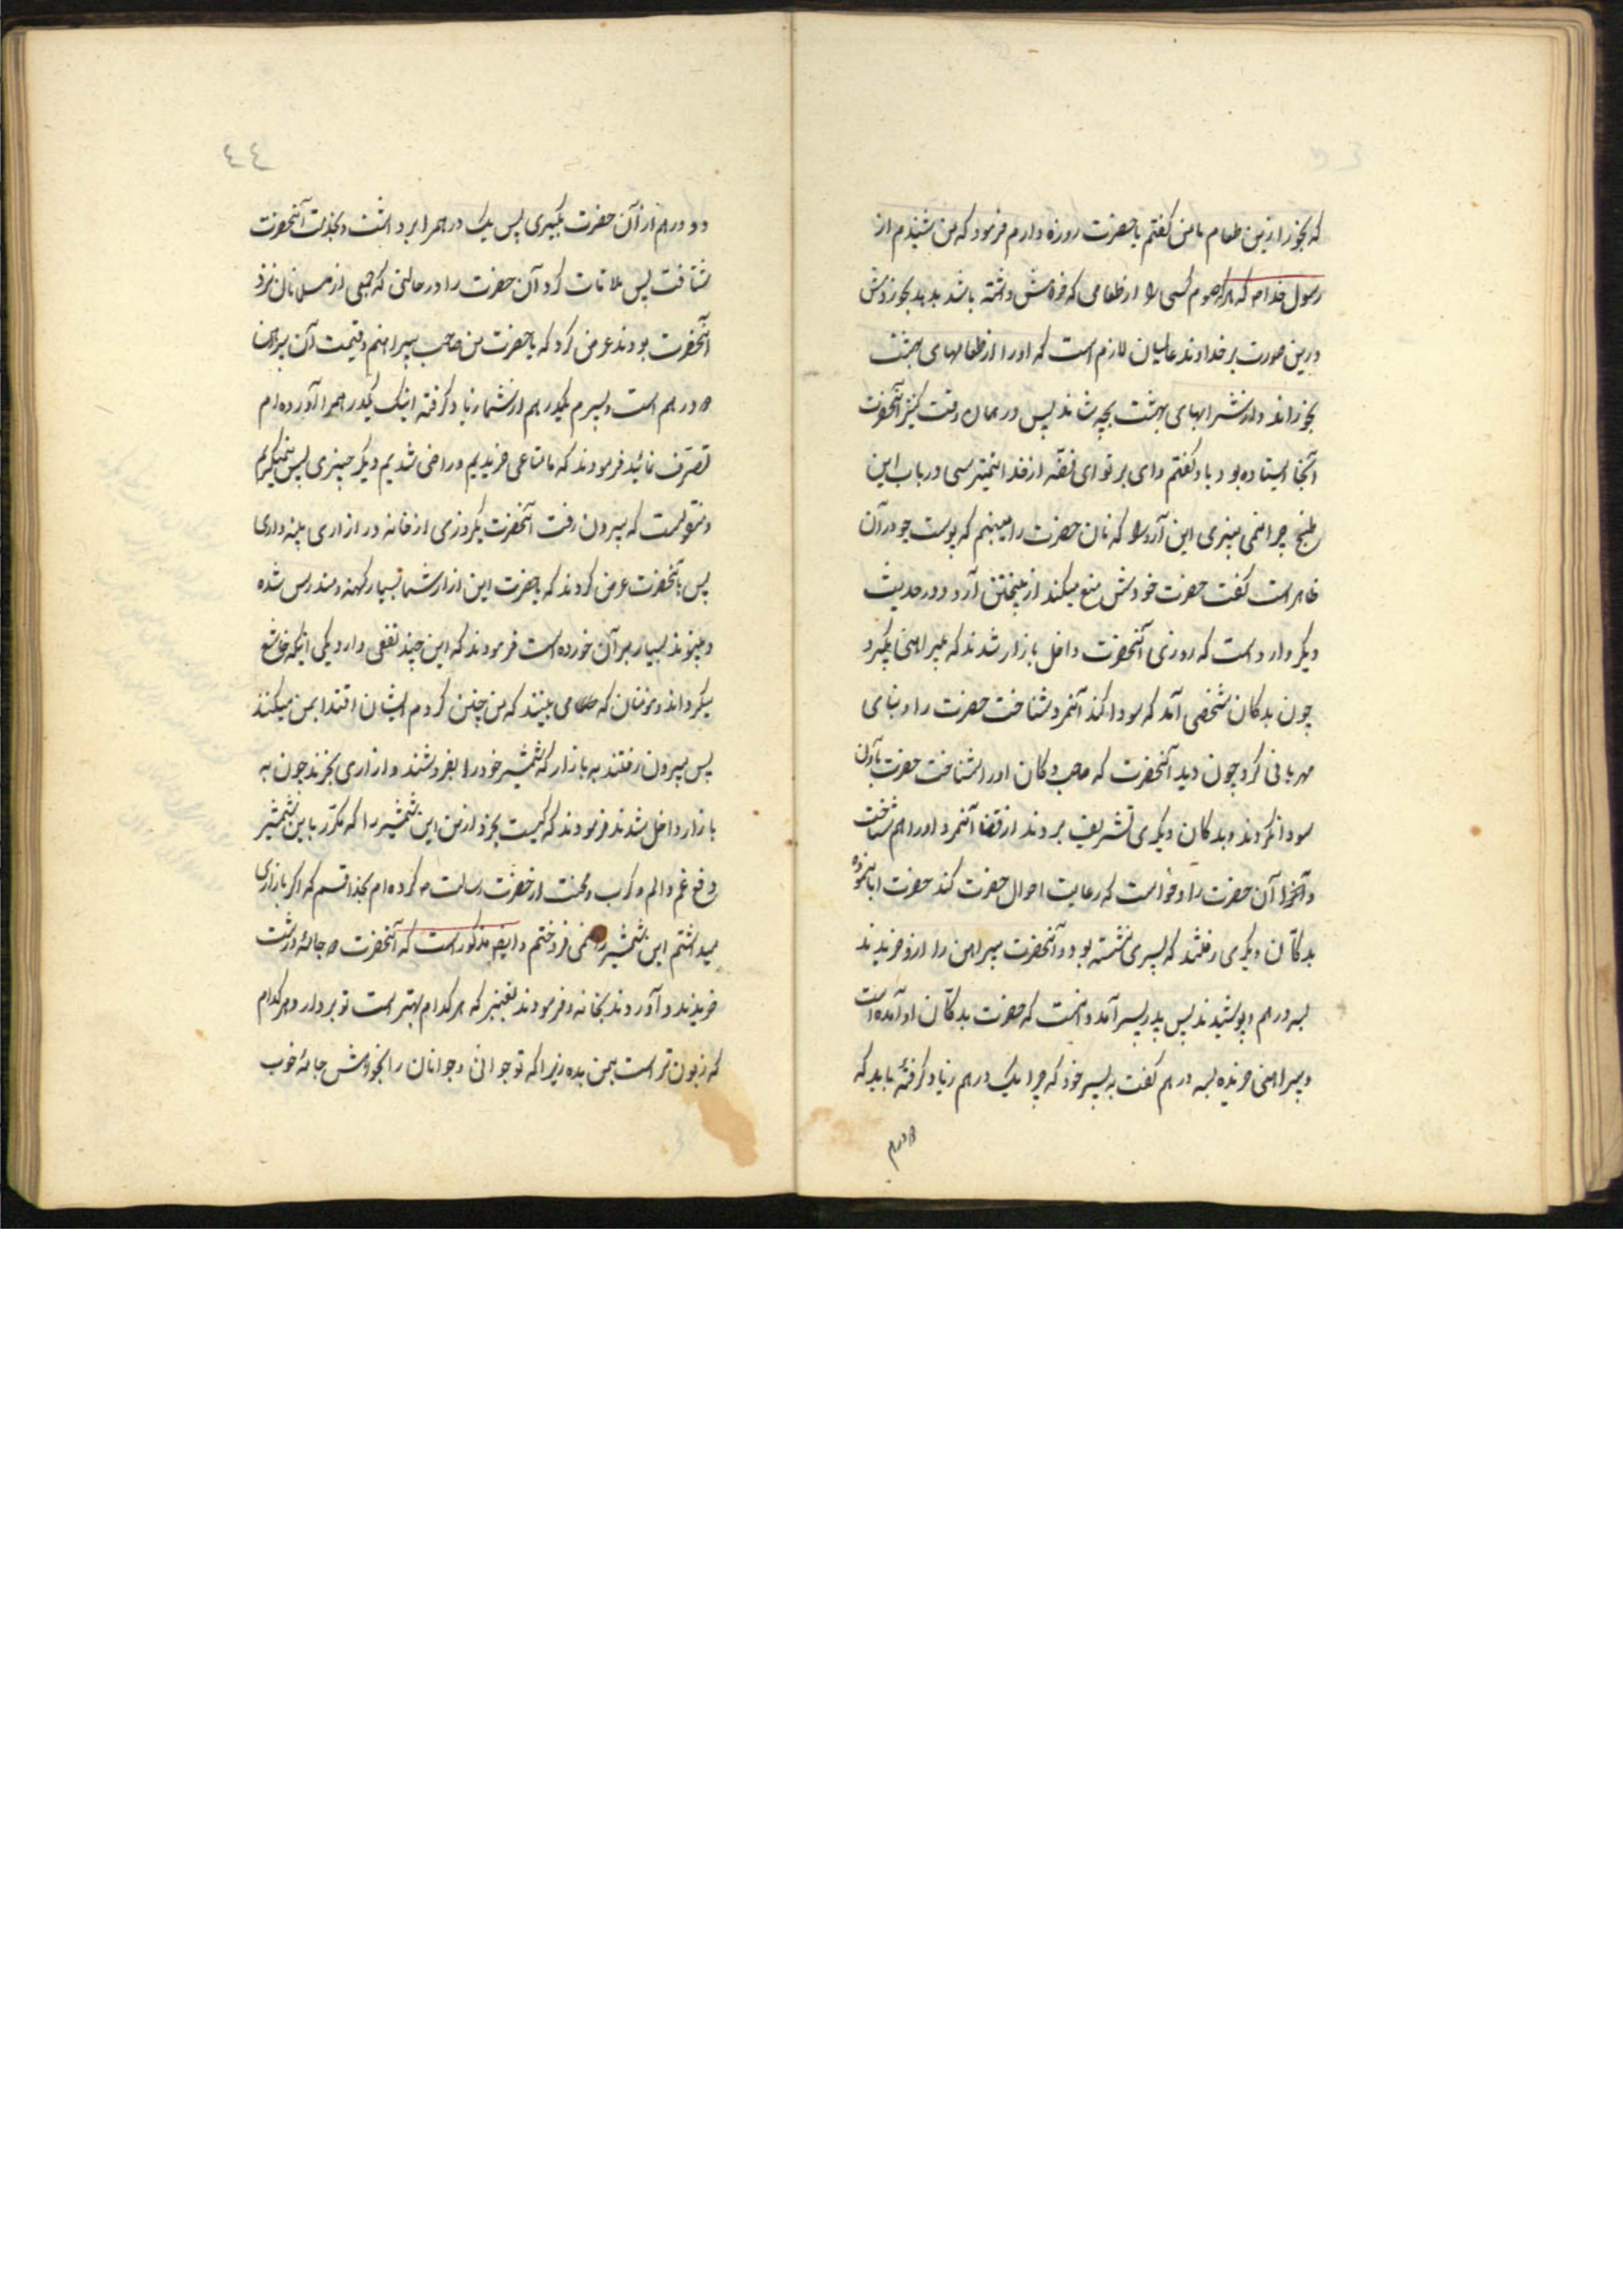 که بخور ازین طعام با من گفتم یا حضرت روزه دارم فرمود که من شنیدم از
رسول خدا م که هرکه صوم کسی را از طعامی که خواهش داشته باشد بدهد بخورش
درین صورت بر خداوند عالمیان لازم است که او را از طعامهای بهشت
بخوراند و از شرابهای بهشت بچشاند پس در همان وقت کنیز آنحضرت
آنجا ایستاده بود باو گفتم وای بر تو ای فضّه از خدا نمیترسی در باب این
شیخ چرا نمی بیزی این آرد را که نان حضرت را میبینم که پوست جو در آن
ظاهر است گفت حضرت خودش منع میکند از بیختن آرد و در حدیث
دیگر وارد است که روزی آنحضرت داخل بازار شدند که پیراهنی بگیرد
چون بدکان شخصی آمد که سودا کند آنمرد شناخت حضرت را و بنای
مهربانی کرد چون دید آنحضرت که صاحب دکان او را شناخت حضرت باو آن
سودا نکردند و بدکان دیگری تشریف بردند از قضا آنمرد او را هم شناخت
و آن حضرت را و خواست که رعایت احوال حضرت کند حضرت ابا نموده
بدکان دیگری رفتند که پسری نشسته بود و آنحضرت پیراهن را ازو خریدند
بسه درهم و پوشیدند پس پدر پسر آمد دانست که حضرت بدکان او آمده است
و پیراهنی خریده بسه درهم گفت به پسر خود که چرا یک درهم زیاد گرفتهٔ باید که
دو درهم
٤٤
دو درهم از آن حضرت بگیری پس یک درهم را برداشت و بخدمت آنحضرت
شتافت پس ملاقات کرد آن حضرت را در حالتی که جمعی از مسلمانان نزد
آنحضرت بودند عرض کرد که یا حضرت من صاحب پیراهنم و قیمت آن پیراهن
دو درهم است و پسرم یکدرهم از شما زیاد گرفته اینک یکدرهم را آورده ام
تصرّف نمائید فرمودند که ما متاعی خریدیم و راضی شدیم دیگر چیزی پس نمیگیریم
و منقولست که بیرون رفت آنحضرت یکروزی از خانه در ازاری پینه داری
پس بآنحضرت عرض کردند که یا حضرت این ازار شما بسیار کهنه و مندرس شده
و پیوند بسیار بر آن خورده است فرمودند که این چند نفعی دارد یکی اینکه خاشع
میگرداند و مؤمنان که می بینند که من چنین کردم ایشان اقتدا بمن میکنند
پس بیرون رفتند به بازار که شمشیر خود را بفروشند و ازاری بخرند چون به
بازار داخل شدند فرمودند که کیست بخرد از من این شمشیر را که مکرّر باین شمشیر
دفع غم و الم و کرب و محنت از حضرت رسالت م کرده ام بخدا قسم که اگر بازاری
میداشتم این شمشیر را نمی فروختم و ایضا مذکور است که آنحضرت دو جامهٔ درشت
خریدند و آوردند بخانه و فرمودند بقنبر که هر کدام بهتر است تو بردار و هر کدام
که زبون تر است بمن بده زیرا که تو جوانی و جوانان را بخودش جامهٔ خوب